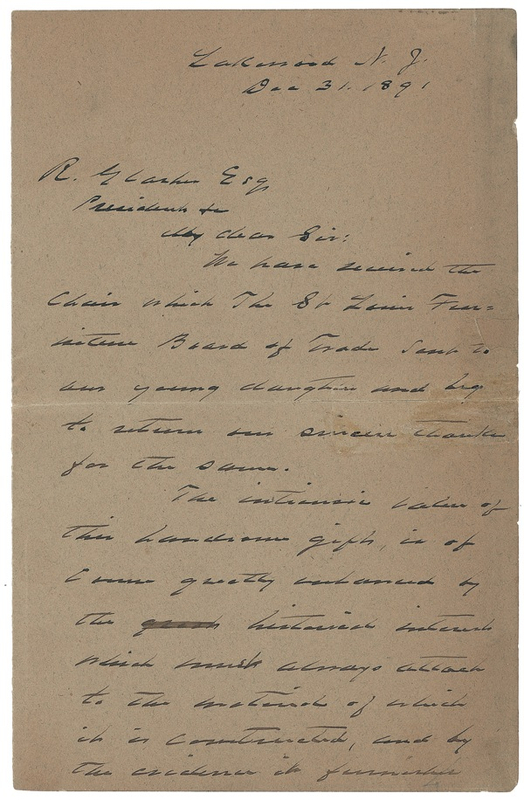 Lakewood N. J.
Dec 31. 1891
R. Esq
President &c
My dear Sir:
We have received the
Chair which The St Louis Fur=
niture Board of Trade sent to
our young daughter and beg
to return our sincere thanks
for the same.
The intrinsic value of
this handsome gift, is of
course greatly enhanced by
the historical interest
which must always attach
to the material of which
it is constructed, and by
the evidence it furnishes